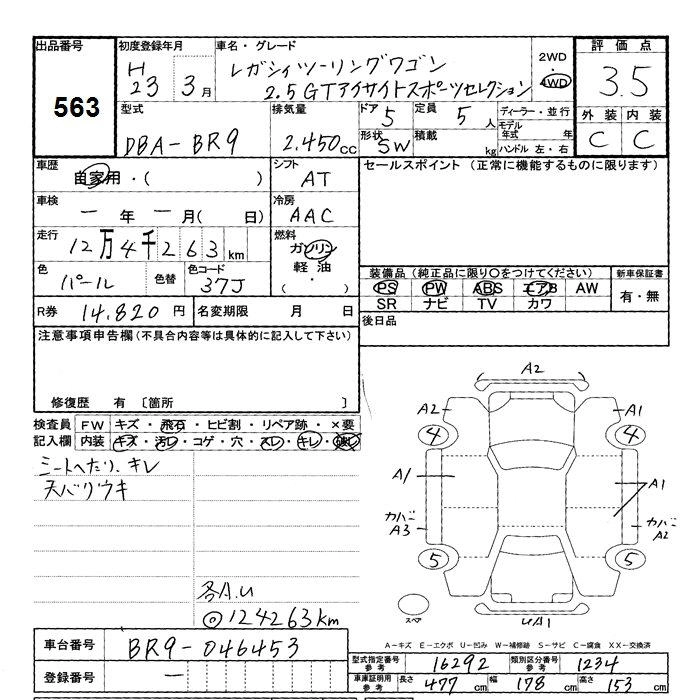 出品番号
563
初度登録年月
H
23 3月
車名・グレード
レガシィツーリングワゴン
2.5GTアイサイトスポーツセレクション
2WD
4WD
評価点
3.5
外装 内装
C C
型式
DBA-BR9
排気量
2.450cc
ドア 5
形状 SW
定員 5人
積載 kg
ディーラー・並行
モデル年式 年
ハンドル 左・右
車歴
自家用・( )
シフト
AT
セールスポイント (正常に機能するものに限ります)
車検
ー年ー月( 日)
冷房
AAC
走行
12万4千263km
燃料
ガソリン
軽油
( ・ )
色
パール
色替
色コード
37J
装備品(純正品に限り○をつけてください)
PS PW ABS エアB AW
SR ナビ TV カワ
新車保証書
有・無
R券 14,820円
名変期限 月 日
後日品
注意事項申告欄(不具合内容等は具体的に記入して下さい)
修復歴 有 〔箇所 〕
検査員
記入欄
FW キズ・飛石・ヒビ割・リペア跡・×要
内装 キズ・汚レ・コゲ・穴・スレ・キレ・
シートへたり、キレ
天バリウキ
各A.U
◎124263km
A2
A2 A1
4 4
A1 A1
カバー A3
カバー A2
5 5
スペア
UA1
A-キズ E-エクボ U-凹み W-補修跡 S-サビ C-腐食 XX-交換済
車台番号 BR9-046453
登録番号 ー
型式指定番号 参考 16292
類別区分番号 参考 1234
車庫証明用 参考 長さ 477cm 幅 178cm 高さ 153cm